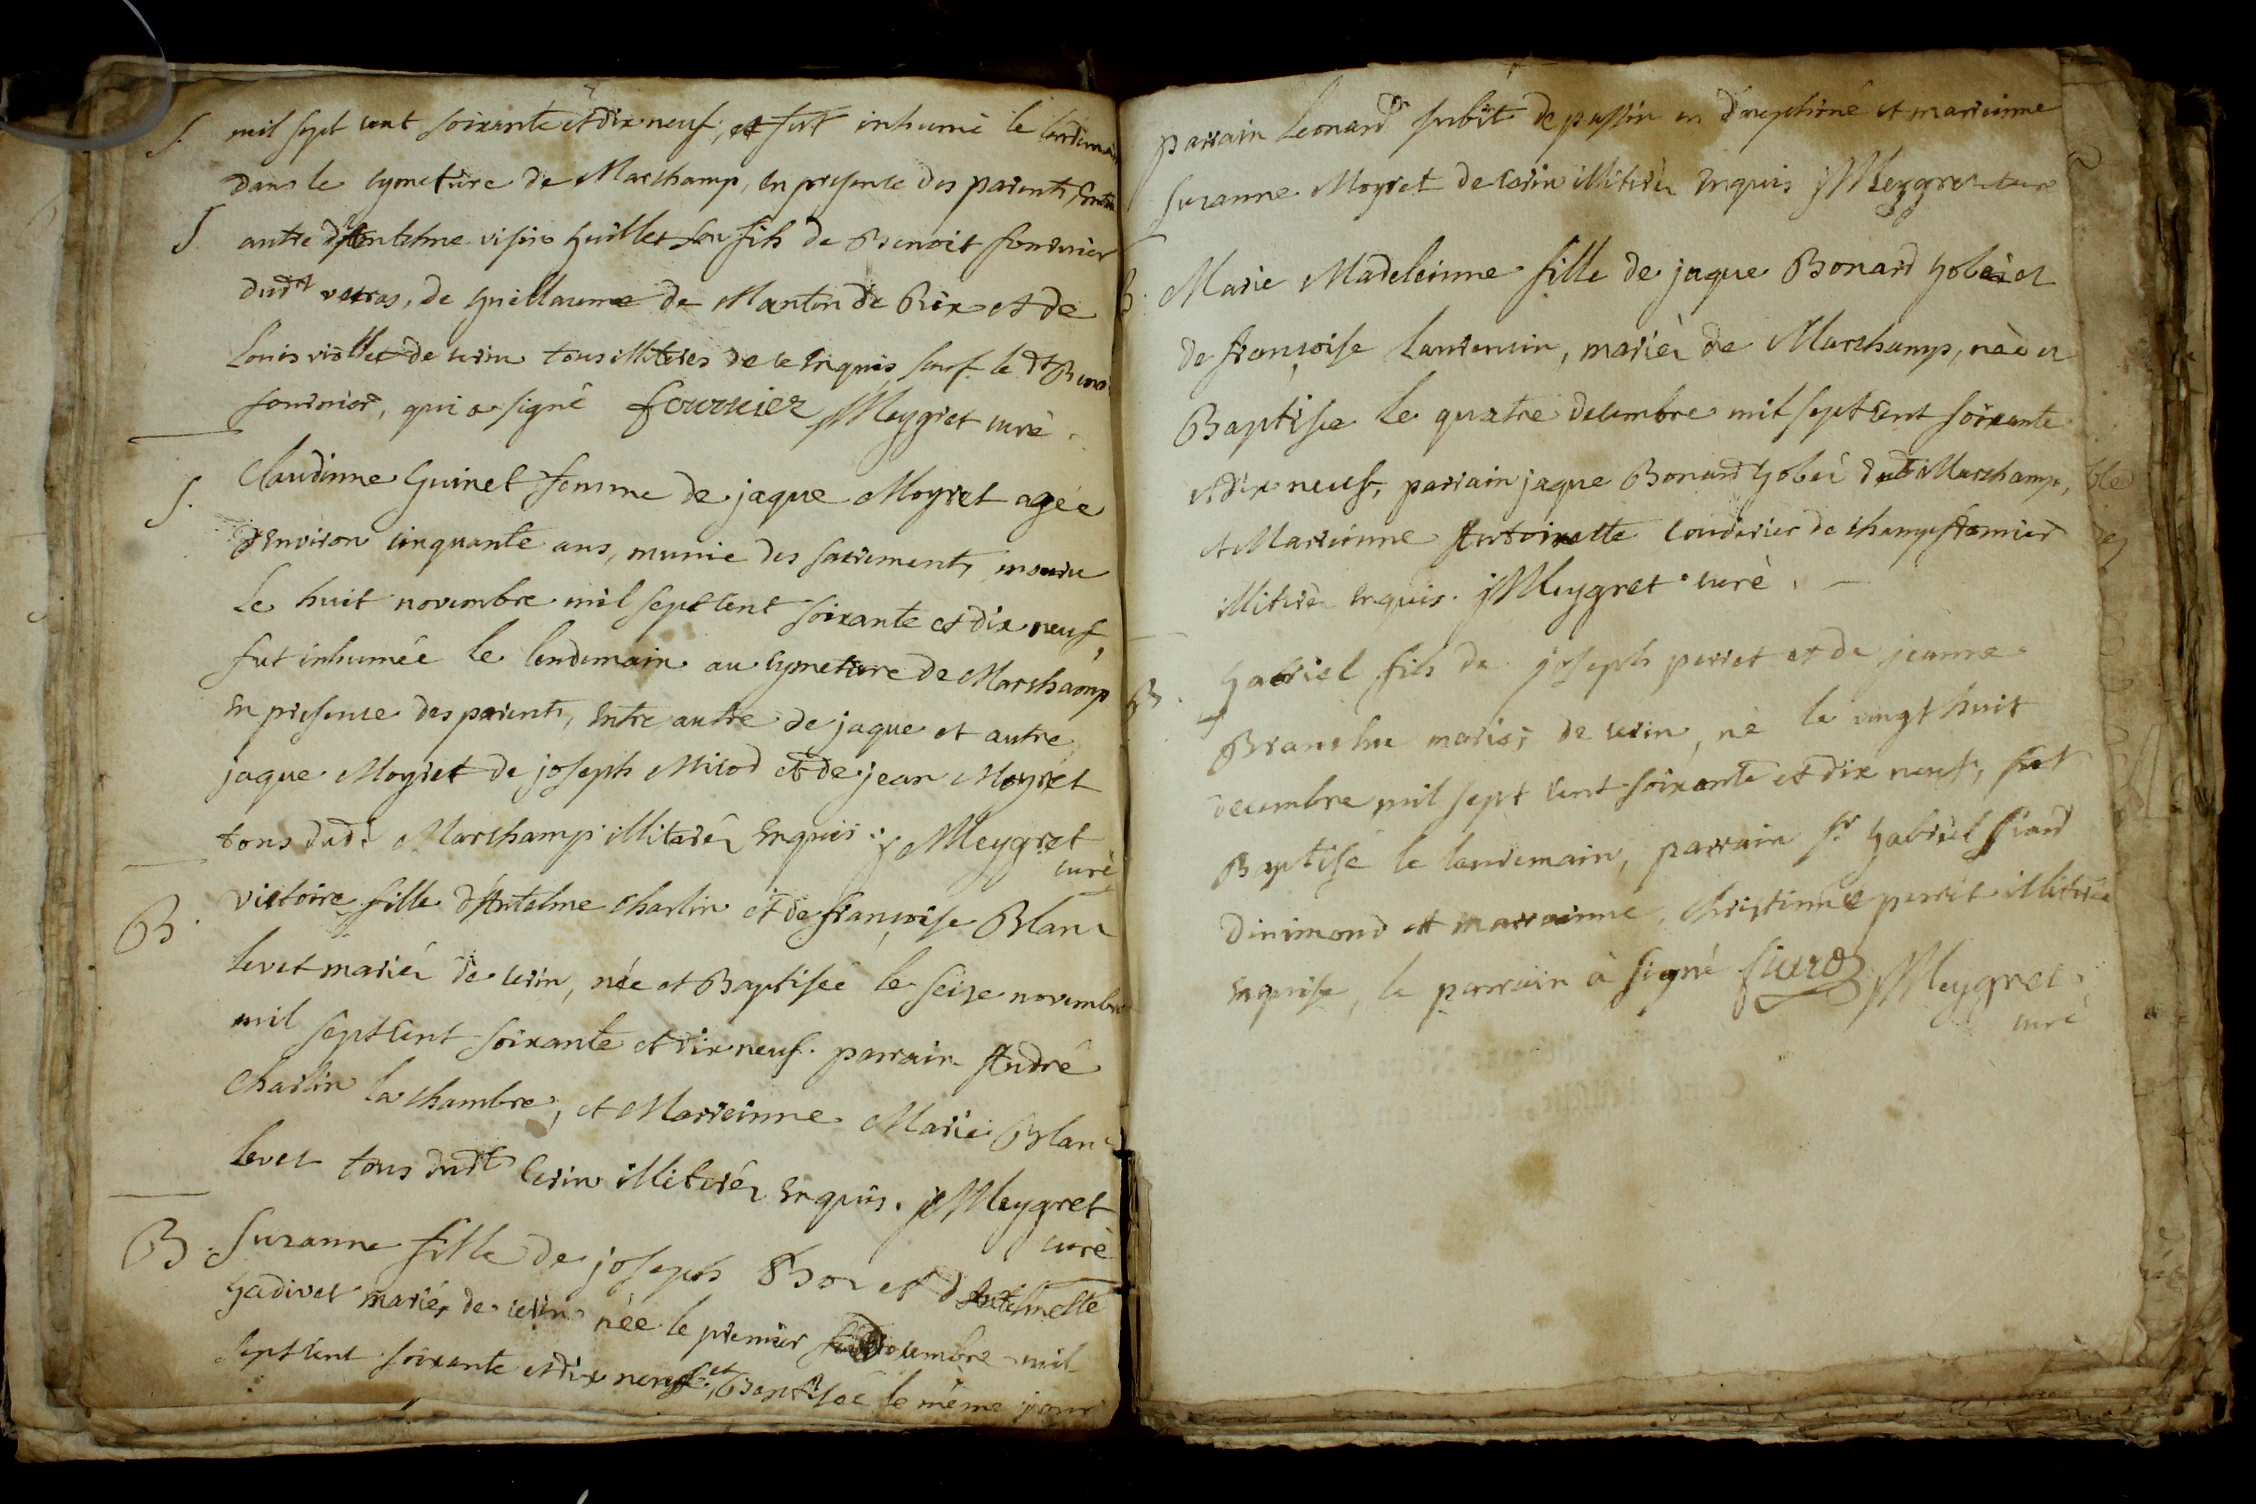 S. mil sept cent soixante et dix neuf, et fut inhumé le lendemain
dans le cymetiere de Marchamp, en presence des parents entre
S autre d'Antelme guillet fils de Benoit fournier
dudt veras, de guillaume de Manton de Rix et de
Louis viollet de cerin tous illiteres de ce enquis sauf le dt Benoit
fournier, qui a signé fournier jMeygret curé
S. Claudinne Guinet femme de jaque Moyret agée
d'environ cinquante ans, munie des sacrements mouru
Le huit novembre mil sept cent soixante et dix neuf,
fut inhumée le lendemain au cymetiere de Marchamp
en presence des parents, entre autre de jaque et autre
jaque Moyret de joseph Milod et de jean Moyret
tous dudt Marchamp illiterés enquis. jMeygret
curé
B. victoire fille d'Antelme Charlin et de françoise Blan
levet mariés de cerin, née et Baptisée le seize novembre
mil sept cent soixante et dix neuf. parrain André
Charlin la chambre, et Marreinne Marie Blan
levet tous dudt Cerin illiterés enquis. jMeygret
curé
B. Suzanne fille de joseph Bor et d'Antelmette
gadivet mariés de cerin née le premier decembre mil
sept cent soixante et dix neuf et Baptisée le même jour
parrain Leonard subit de passin en et marreinne
Suzanne Moyret de cerin illiterés enquis jMeygret curé
B. Marie Madeleinne fille de jaque Bonard gobei et
de françoise Laurencin, mariés de Marchamp, née et
Baptisée le quatre decembre mil sept cent soixante
et dix neuf, parrain jaque Bonard gobei dudt Marchamp,
et Marreinne Antoinette Couderier de champfromier
illiterés enquis. jMeygret curé.
B. Gabriel fils de joseph perret et de jeanne
Branchu mariés de cerin, né le vingt huit
decembre mil sept cent soixante et dix neuf, fut
Baptisé le lendemain, parrain sr. Gabriel siard
dinimond et marreinne, Christinne perret illiterée
enquise, le parrain à signé jMeygret
curé